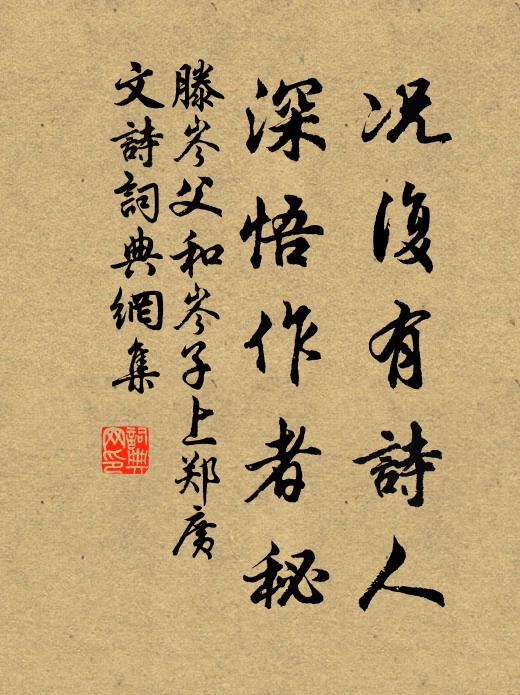 况復有詩人
深悟作者秘
滕岑父和岑子上郑廣
文詩詞典網集
詞典
网印